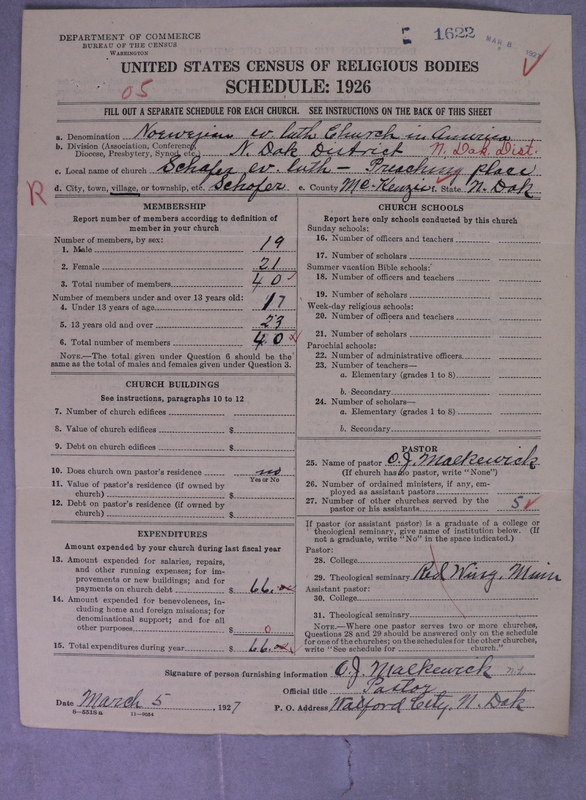 DEPARTMENT OF COMMERCE
BUREAU OF THE CENSUS
WASHINGTON
1622
MAR 8 1927
UNITED STATES CENSUS OF RELIGIOUS BODIES
05
SCHEDULE: 1926
FILL OUT A SEPARATE SCHEDULE FOR EACH CHURCH. SEE INSTRUCTIONS ON THE BACK OF THIS SHEET
a. Denomination Norwegian ev. luth Church in America
b. Division (Association, Conference, Diocese, Presbytery, Synod, etc.) N. Dak District N. Dak. Dist.
c. Local name of church Schafer ev. luth - Preaching place
R
d. City, town, village, or township, etc. Schafer e. County Mc-Kenzie f. State N. Dak
MEMBERSHIP
Report number of members according to definition of member in your church
Number of members, by sex:
1. Male 19
2. Female 21
3. Total number of members 40
Number of members under and over 13 years old:
4. Under 13 years of age 17
5. 13 years old and over 23
6. Total number of members 40
NOTE.—The total given under Question 6 should be the same as the total of males and females given under Question 3.
CHURCH BUILDINGS
See instructions, paragraphs 10 to 12
7. Number of church edifices
8. Value of church edifices $
9. Debt on church edifices $
10. Does church own pastor's residence no
Yes or No
11. Value of pastor's residence (if owned by church) $
12. Debt on pastor's residence (if owned by church) $
EXPENDITURES
Amount expended by your church during last fiscal year
13. Amount expended for salaries, repairs, and other running expenses; for improvements or new buildings; and for payments on church debt $ 66.
14. Amount expended for benevolences, including home and foreign missions; for denominational support; and for all other purposes $ 0
15. Total expenditures during year $ 66.
CHURCH SCHOOLS
Report here only schools conducted by this church
Sunday schools:
16. Number of officers and teachers
17. Number of scholars
Summer vacation Bible schools:
18. Number of officers and teachers
19. Number of scholars
Week-day religious schools:
20. Number of officers and teachers
21. Number of scholars
Parochial schools:
22. Number of administrative officers
23. Number of teachers—
a. Elementary (grades 1 to 8)
b. Secondary
24. Number of scholars—
a. Elementary (grades 1 to 8)
b. Secondary
PASTOR
25. Name of pastor O. J. Malkewick
(If church has no pastor, write "None")
26. Number of ordained ministers, if any, employed as assistant pastors
27. Number of other churches served by the pastor or his assistants 5
If pastor (or assistant pastor) is a graduate of a college or theological seminary, give name of institution below. (If not a graduate, write "No" in the space indicated.)
Pastor:
28. College
29. Theological seminary Red Wing, Minn
Assistant pastor:
30. College
31. Theological seminary
NOTE.—Where one pastor serves two or more churches, Questions 28 and 29 should be answered only on the schedule for one of the churches; on the schedules for the other churches, write "See schedule for ______ church."
Signature of person furnishing information O. J. Malkewick
Official title Pastor
Date March 5, 1927 P. O. Address Watford City, N. Dak
8—5518a 11—9084